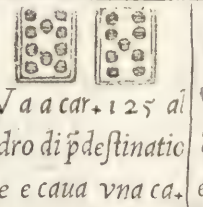 Va a car. 125 al
dro di p̃destinatio
e e caua vna ca.